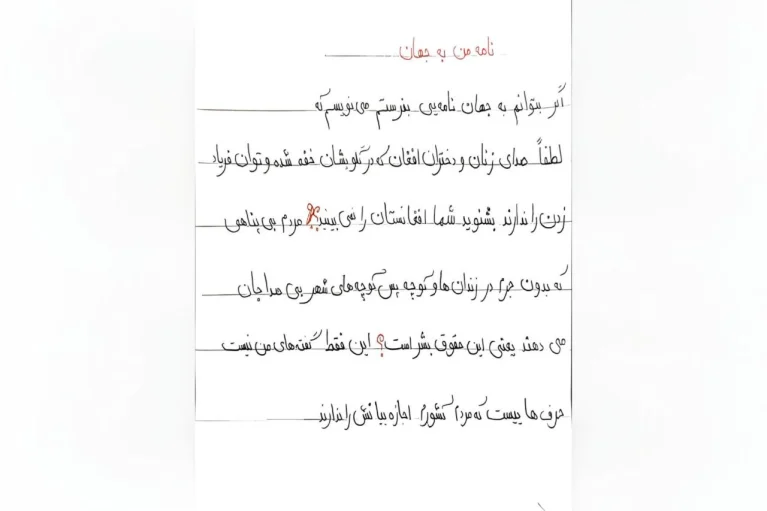 نامه من به جهان
اگر بتوانم به جهان نامه‌یی بفرستم می‌نویسم که
لطفاً صدای زنان و دختران افغان که در گلویشان خفه شده و توان فریاد
زدن را ندارند بشنوید شما افغانستان را نمی‌بینید؟ مردم بی‌پناهی
که بدون جرم در زندان ها و کوچه پس کوچه‌های شهر بی صدا جان
می دهند یعنی این حقوق بشر است؟ این فقط گفته‌های من نیست
حرف ها ییست که مردم کشورم اجازه بیانش را ندارند